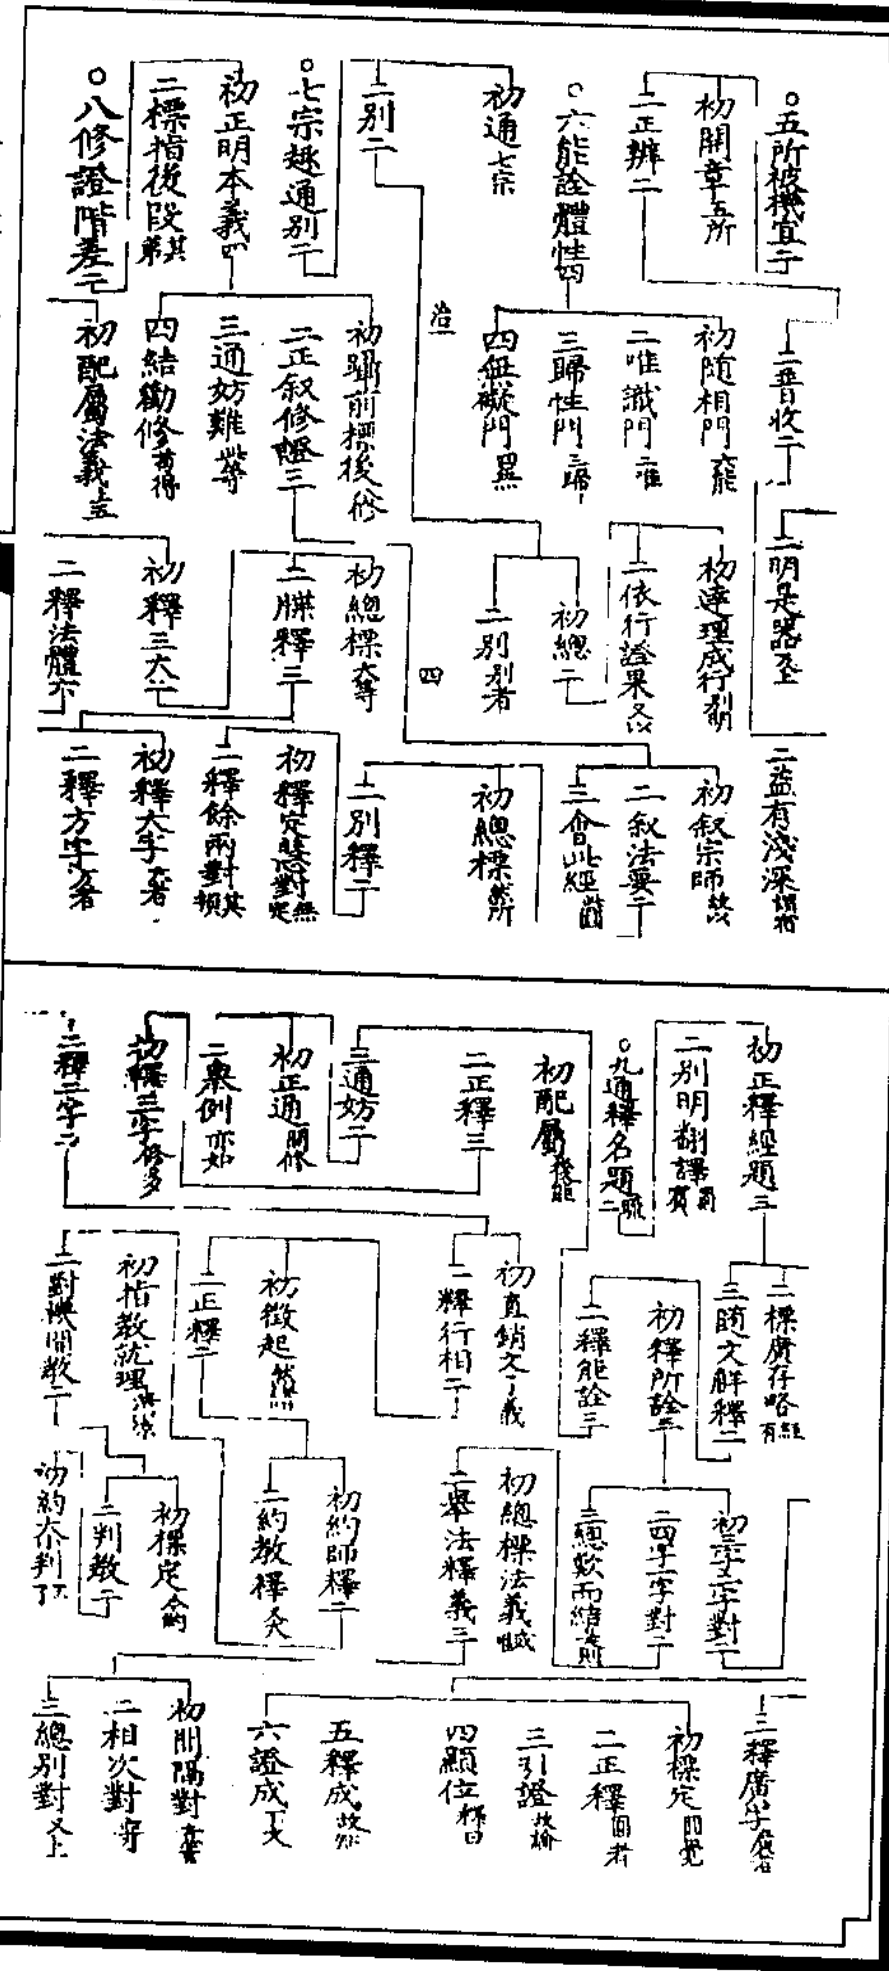 ○五所被機宜二
初開章五所
二正辨二
○六能詮體性四
初通七宗
二別二
○七宗趣通別二
初正明本義四
二標指後段其第
○八修證階差二
二普收二
初隨相門能
二唯識門二唯
三歸性門三歸
四無礙門
治一
初躡前標後修
二正叙修證三
三通妨難等
四結勸修苟得
初配屬法義
二明是器
初達理成行別明
二依行證果又以
初總二
二別別者
四
初總標大等
二牒釋三
初釋三大二
二釋法體六
二益有淺深
初叙宗師
二叙法要二
三會此經
初總標然所
二別釋二
初釋定慧對無定
二釋餘兩對其
初釋大字大者
二釋方字方者
初正釋經題三
二別明翻譯
○九通釋名題二
初配屬後能
二正釋三
三通妨二
初正通明修
二舉例亦如
初釋二字修多
二釋二字二
二標廣存略有經
三隨文解釋二
初釋所詮三
二釋能詮三
初直銷文了義
二釋行相二
初徵起然
二正釋二
初指教就理
二對機開教二
初三字二字對二
二四字一字對二
三總歎而結
初總標法義
二舉法釋義三
初約師釋二
二約教釋又大
初標定今約
二判教二
初約亦判
三釋廣字廣者
初標定圓覺
二正釋圓者
三引證故論
四顯位釋曰
五釋成故
六證成下文
初開隔對
二相次對
三總別對又上